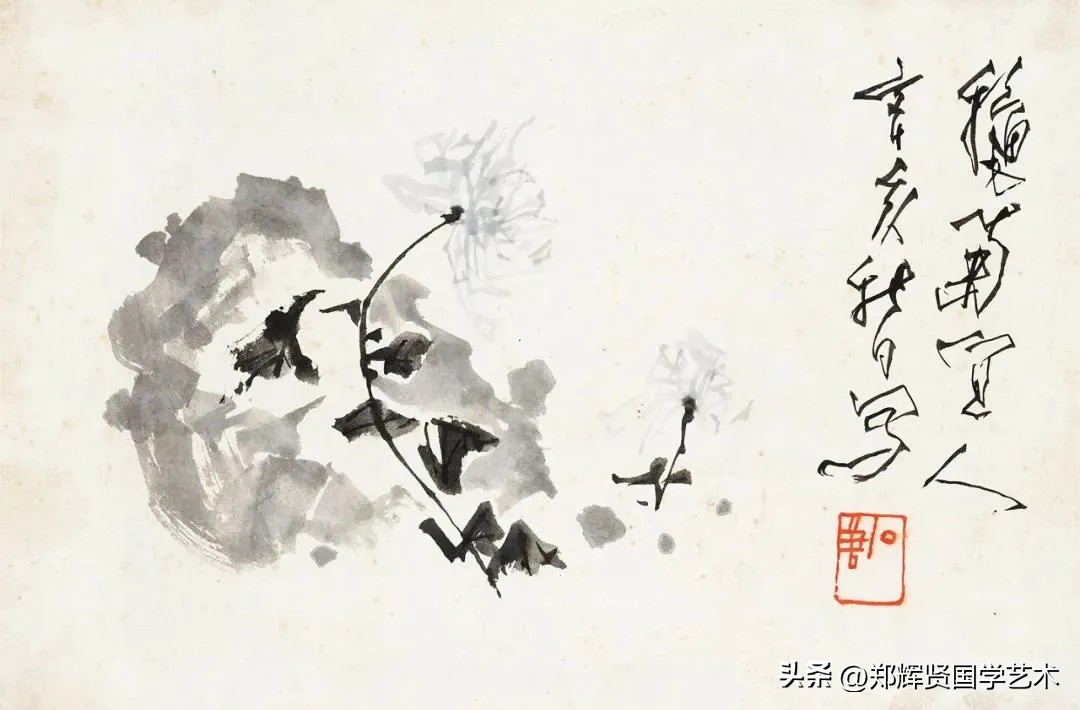 菊宜人
辛亥秋日写
头条 @郑辉贤国学艺术